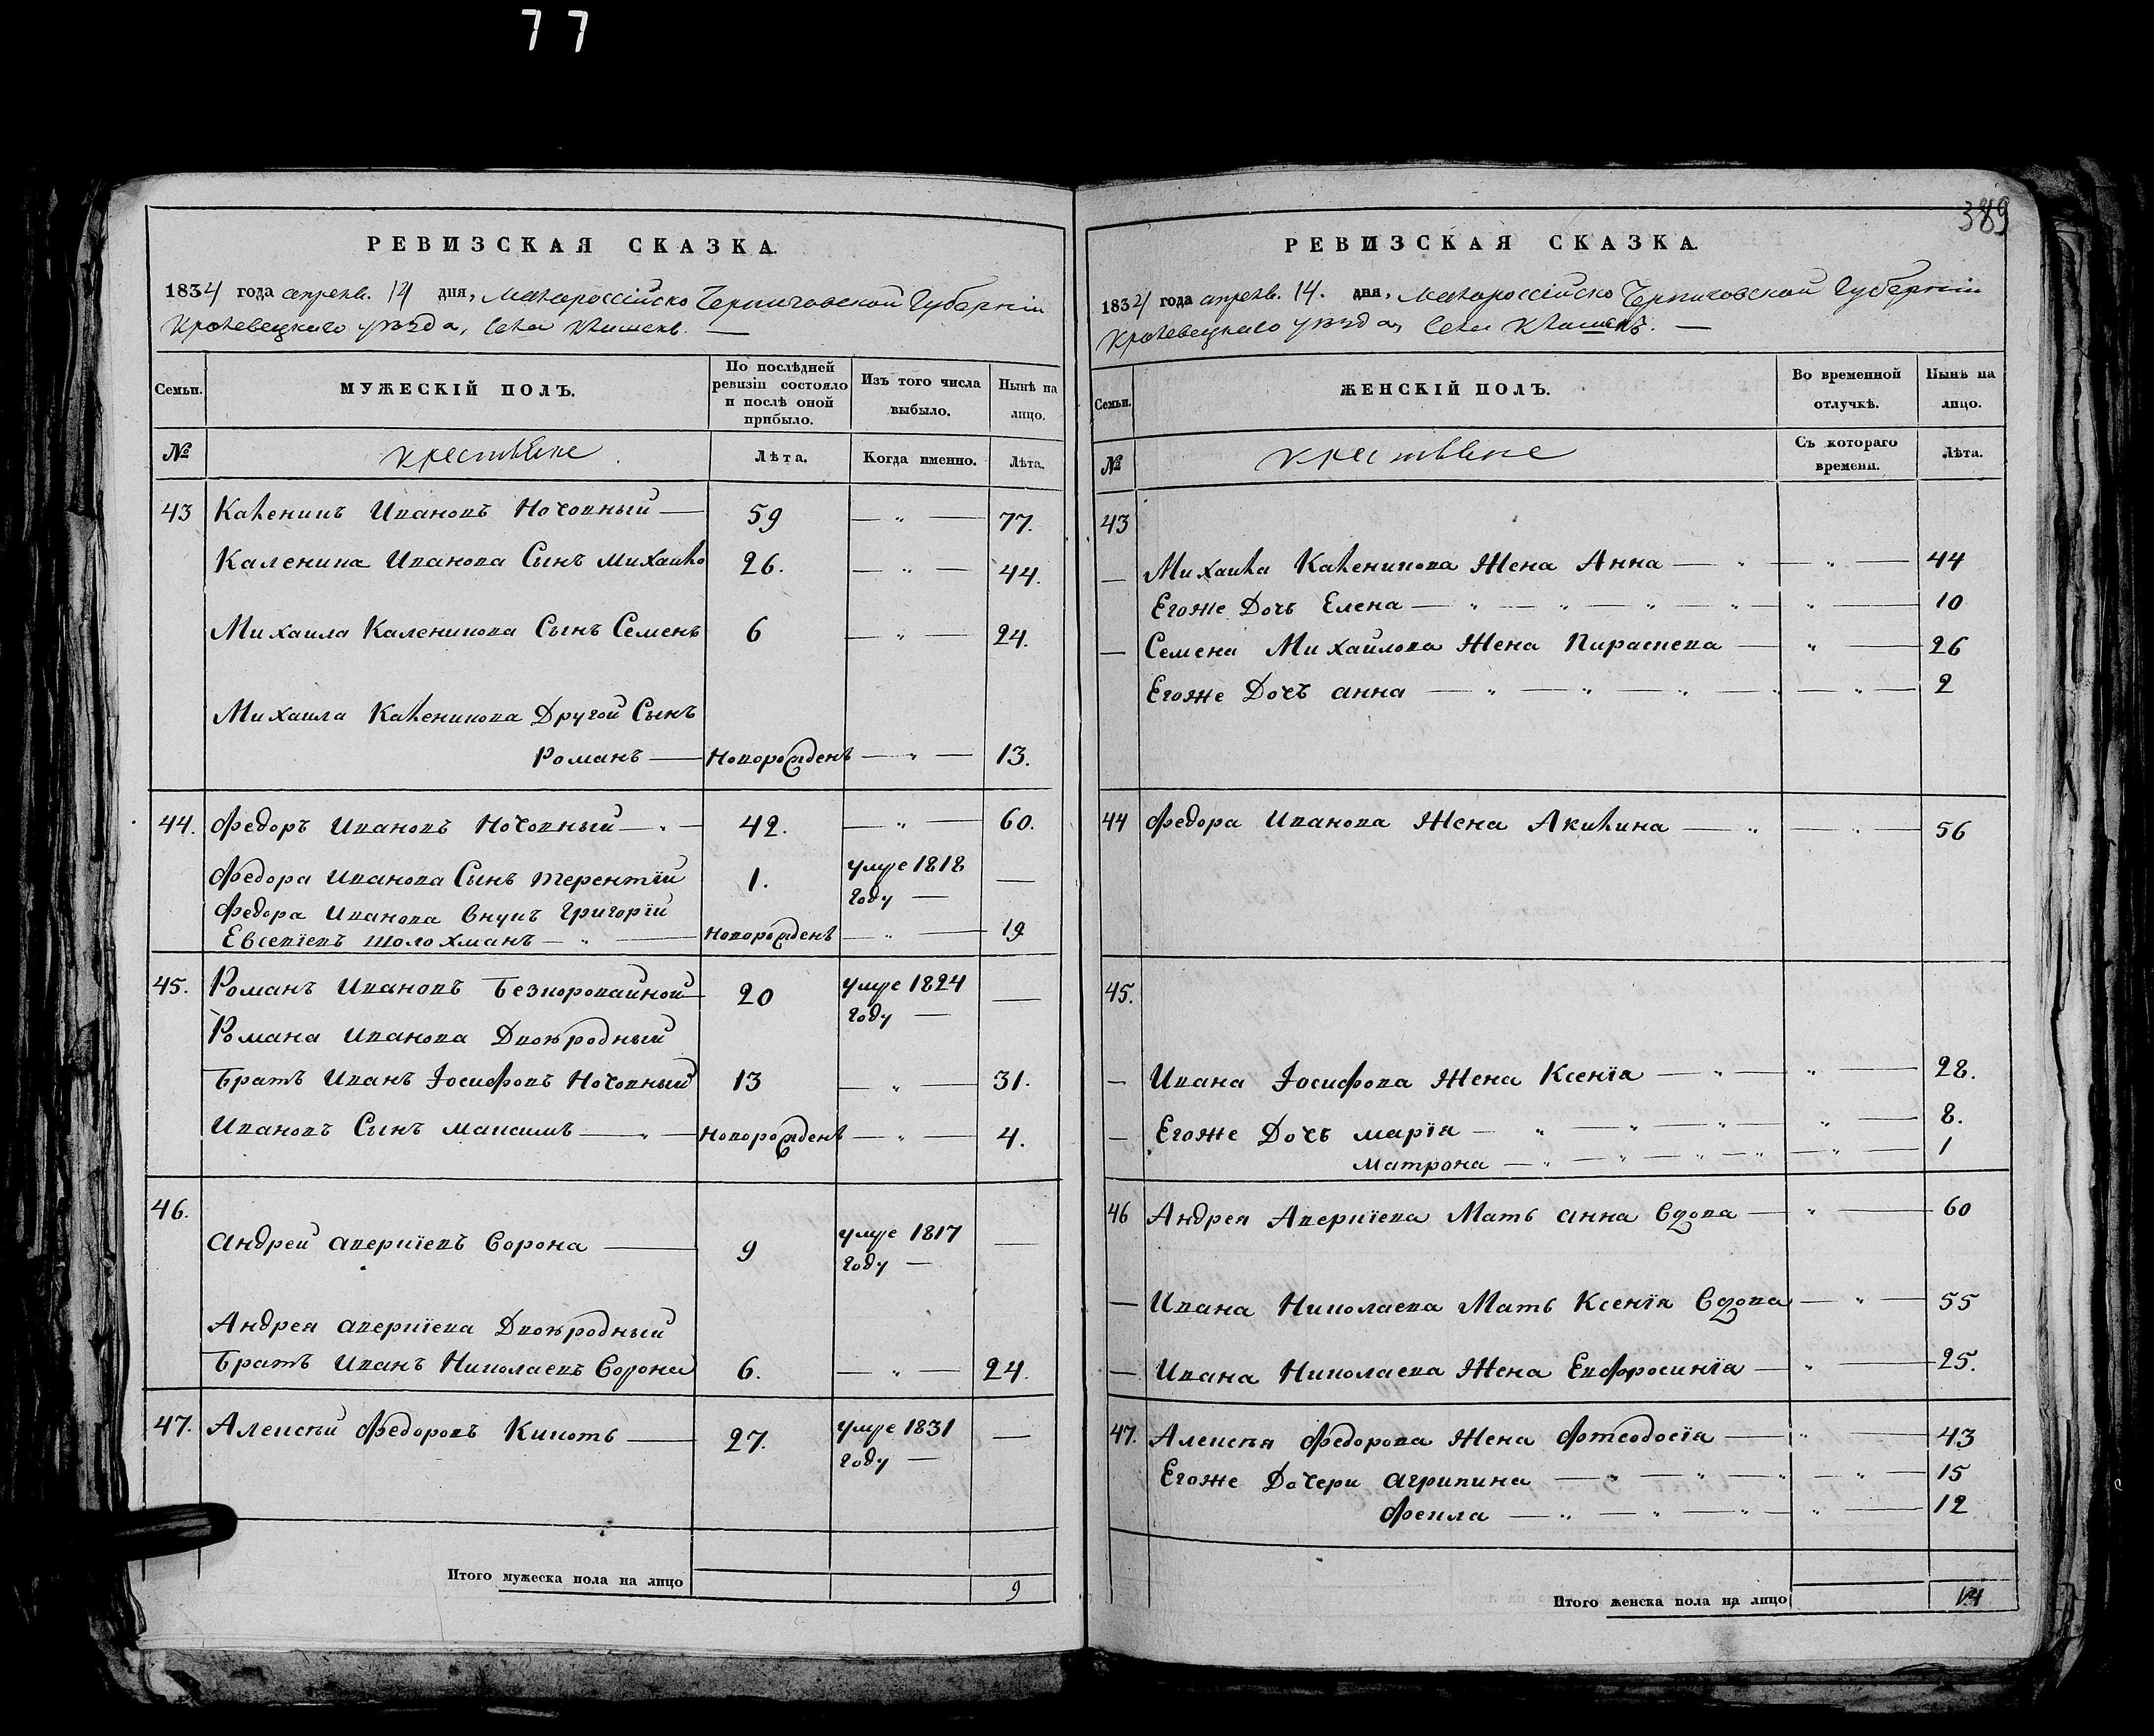 77
РЕВИЗСКАЯ СКАЗКА.
1834 года апреля 14 дня, Малороссійско Черниговской Губерніи
Кролевецкаго уѣзда, Села Клишекъ. —
Семьи.
МУЖЕСКІЙ ПОЛЪ.
По послѣдней ревизіи состояло и послѣ оной прибыло.
Изъ того числа выбыло.
Нынѣ на лицо.
№
крестьяне
Лѣта.
Когда именно.
Лѣта.
43 Каленикъ Ивановъ Ночовный — 59 — „ — 77.
Каленика Иванова Сынъ Михайло 26. — „ — 44.
Михаила Каленикова Сынъ Семенъ 6 — „ — 24.
Михаила Каленикова Другой Сынъ
Романъ — Новорожденъ — „ — 13.
44. Федоръ Ивановъ Ночовный — „ — 42. — „ — 60.
Федора Иванова Сынъ Терентій 1. умре 1818 году — —
Федора Иванова Внукъ Григорій
Евсевіевъ Шолохманъ — „ — Новорожденъ — „ — 19
45. Романъ Ивановъ Безкоровайной — 20 умре 1824 году — —
Романа Иванова Двоюродный
Братъ Иванъ Іосифовъ Ночовный 13 — „ — 31.
Ивановъ Сынъ Максимъ — „ — Новорожденъ — „ — 4.
46.
Андрей Аверкіевъ Ворона — 9 умре 1817 году — —
Андрея Аверкіева Двоюродный
Братъ Иванъ Николаевъ Ворона 6. — „ — 24.
47. Алексѣй Федоровъ Кикоть — 27. умре 1831 году — —
Итого мужеска пола на лицо 9
389
РЕВИЗСКАЯ СКАЗКА.
1834 года апреля. 14. дня, Малороссійско Черниговской Губерніи
Кролевецкаго уѣзда, Села Клишекъ. —
Семьи.
ЖЕНСКІЙ ПОЛЪ.
Во временной отлучкѣ.
Нынѣ на лицо.
№
крестьяне
Съ котораго времени.
Лѣта.
43
— Михайла Каленикова Жена Анна — „ — „ — 44
Егоже Дочь Елена — „ — „ — „ — „ — „ — 10
— Семена Михайлова Жена Параскева — „ — 26
Егоже Дочъ Анна — „ — „ — „ — „ — „ — 2
44 Федора Иванова Жена Акилина — „ — „ — 56
45.
— Ивана Іосифова Жена Ксенія — „ — „ — 28.
— Егоже Дочъ Марія — „ — „ — „ — „ — 8.
Матрона — „ — „ — „ — „ — „ — 1
46 Андрея Аверкіева Мать Анна Вдова — „ — 60
— Ивана Николаева Мать Ксенія Вдова — „ — 55
— Ивана Николаева Жена Евфросинія — „ — 25.
47. Алексѣя Федорова Жена Фтеодосія — „ — 43
Егоже Дочери Агрипина — „ — „ — „ — „ — 15
Фекла — „ — „ — „ — „ — 12
Итого женска пола на лицо 14